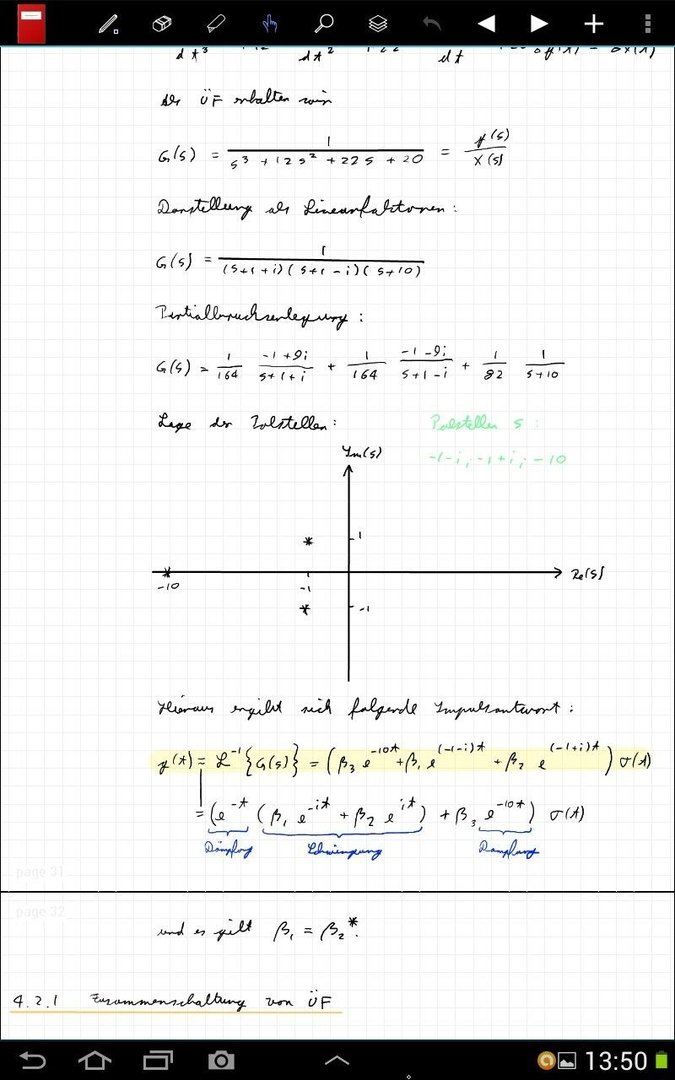 der ÜF erhalten wir
G(s) = 1 / (s³ + 12s² + 22s + 20) = y(s) / X(s)
Darstellung als Linearfaktoren:
G(s) = 1 / ((s+1+i)(s+1-i)(s+10))
Partialbruchzerlegung:
G(s) = 1/164 (-1+9i)/(s+1+i) + 1/164 (-1-9i)/(s+1-i) + 1/82 1/(s+10)
Lage der Polstellen: Polstellen s:
-1-i; -1+i; -10
Im(s)
1
Re(s)
-10 -1
-1
Hieraus ergibt sich folgende Impulsantwort:
y(t) = L⁻¹{G(s)} = (β₃ e^(-10t) + β₁ e^((-1-i)t) + β₂ e^((-1+i)t)) σ(t)
= (e^(-t) (β₁ e^(-it) + β₂ e^(it)) + β₃ e^(-10t)) σ(t)
Dämpfung Schwingung Dämpfung
page 31
page 32
und es gilt β₁ = β₂*.
4.2.1 Zusammenschaltung von ÜF
13:50